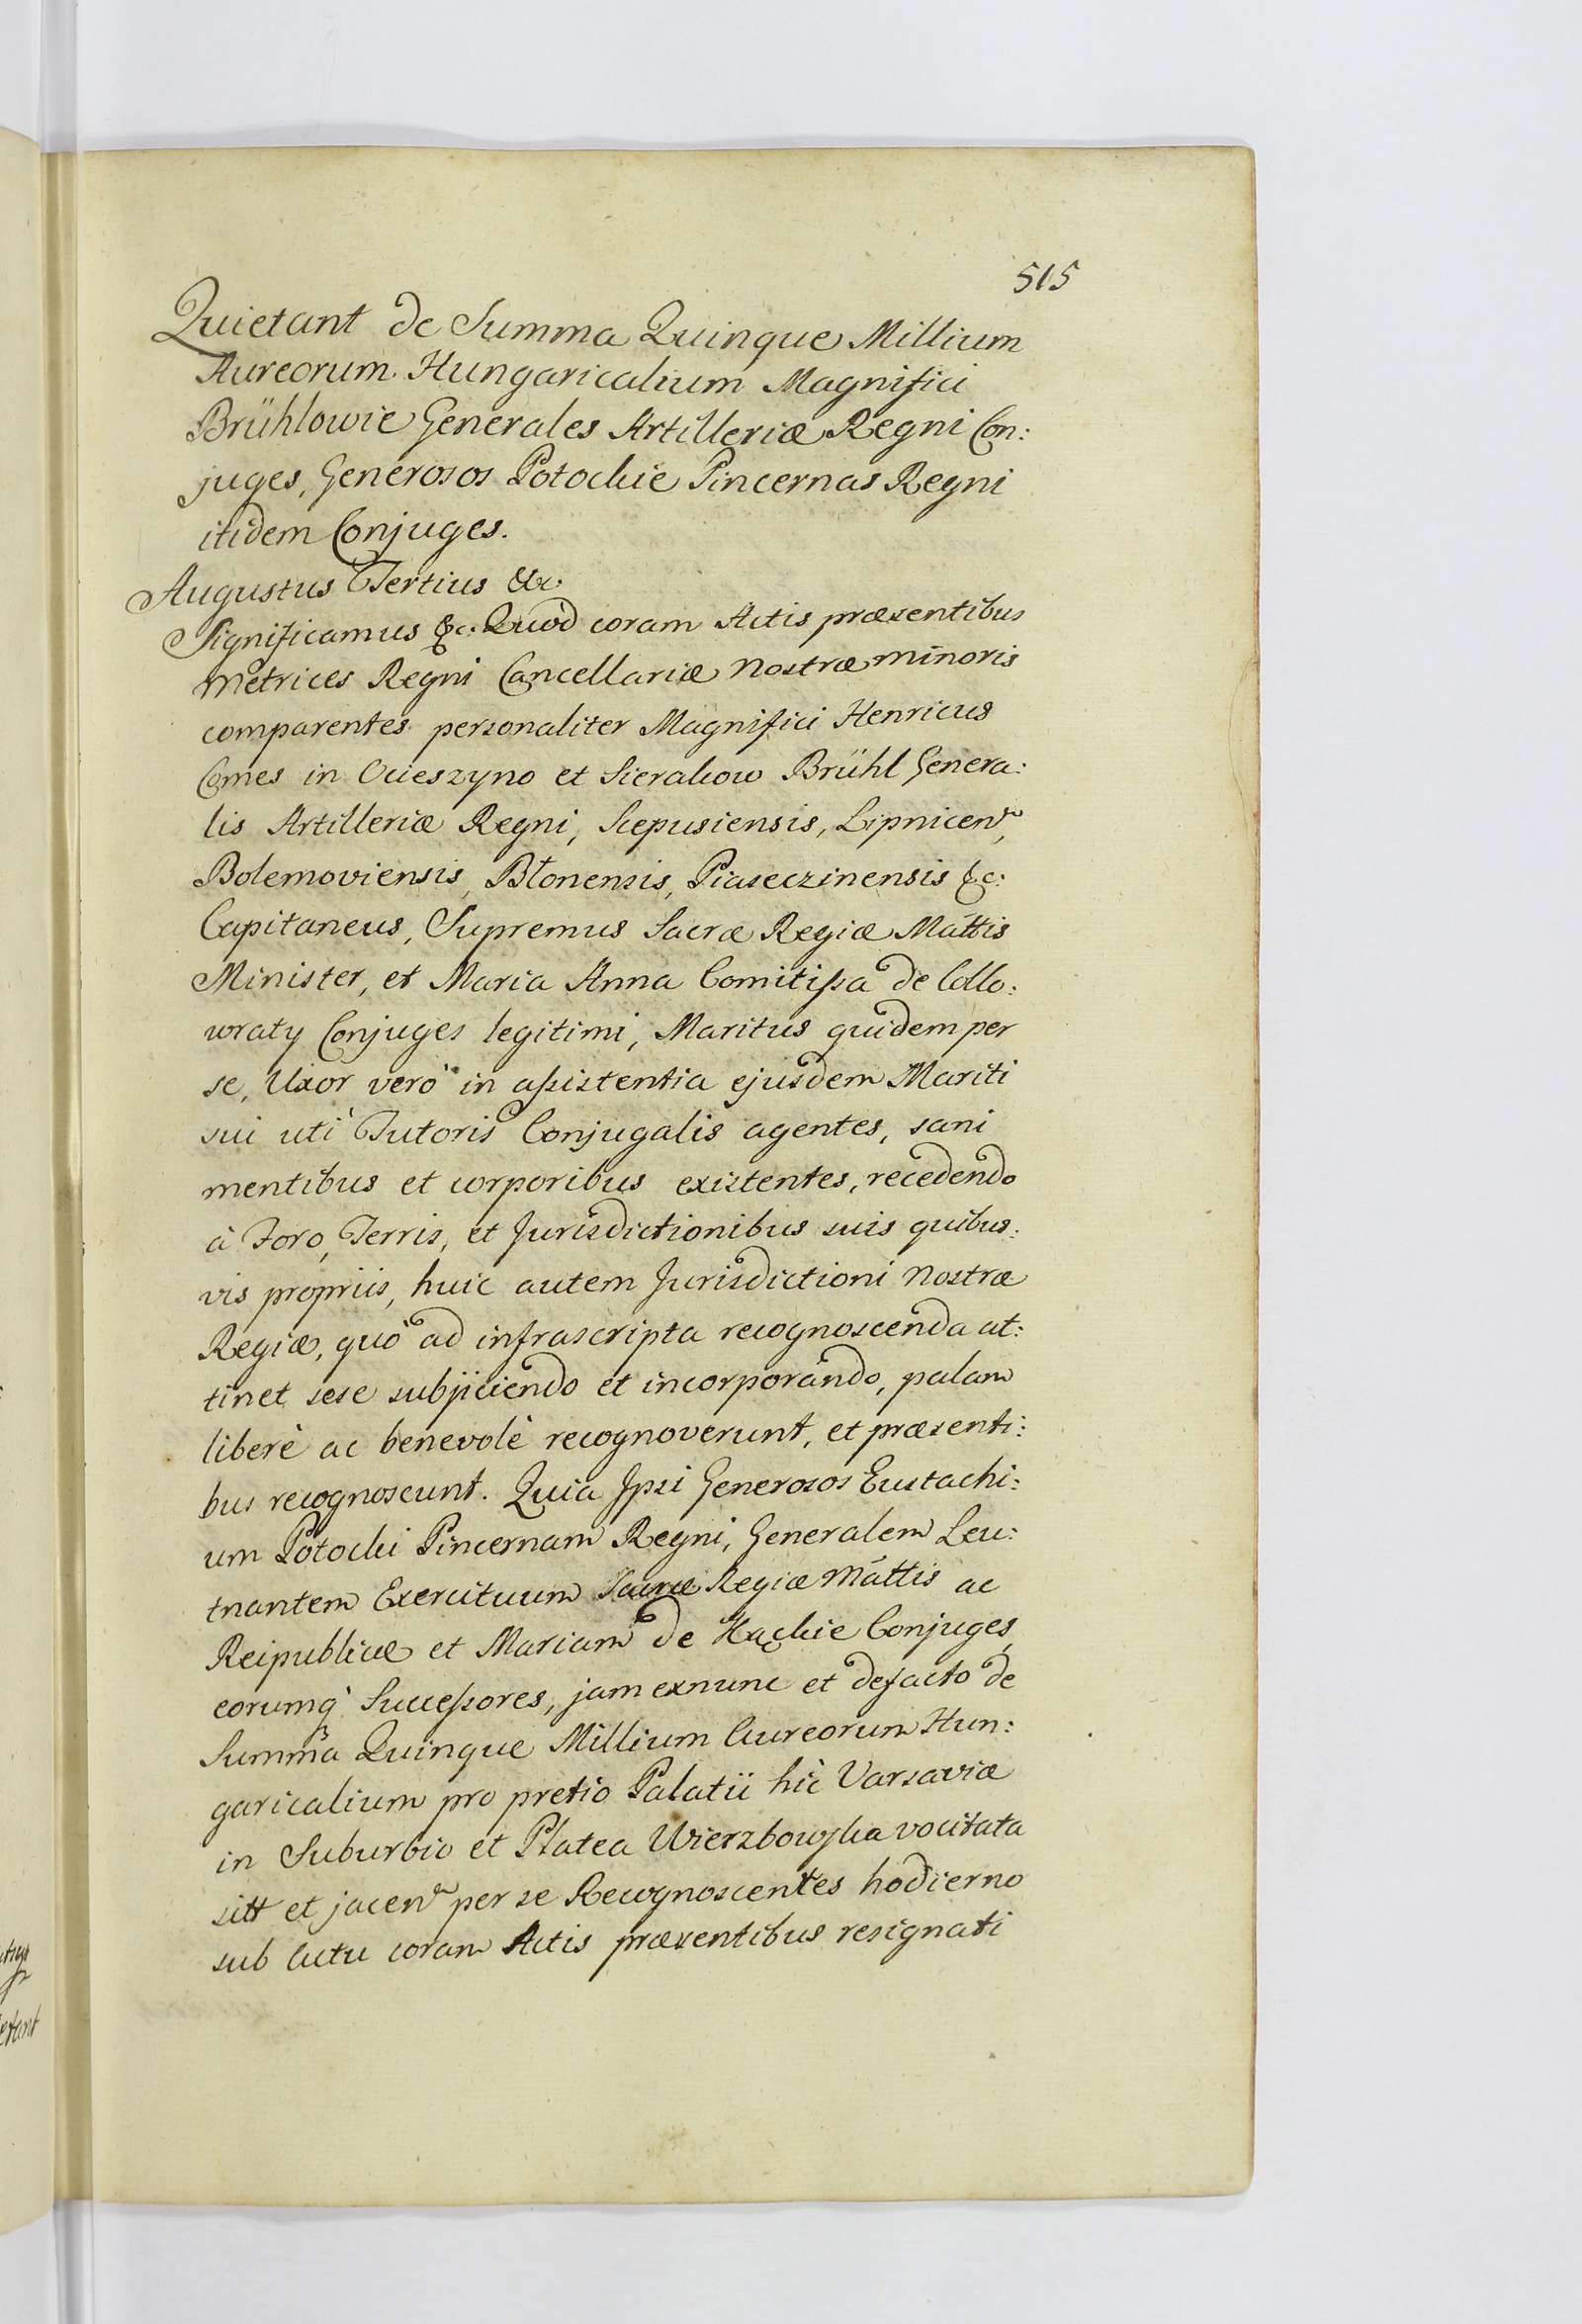 515
Quietant de Summa Quinque Millium
Aureorum Hungaricalium Magnifici
Brühlowie Generales Artilleriæ Regni Con:
juges, Generosos Potockie Pincernas Regni
itidem Conjuges.
Augustus Tertius &c.
Significamus &c. Quod coram Actis præsentibus
Metrices Regni Cancellariæ Nostræ Minoris
comparentes personaliter Magnifici Henricus
Comes in Ocieszyno et Sierakow Brühl Genera:
lis Artilleriæ Regni, Scepusiensis, Lipnicen,
Bolemoviensis, Błonensis, Piaseczinensis &c:
Capitaneus, Supremus Sacræ Regiæ Mattis
Minister, et Maria Anna Comitissa de Collo:
wraty Conjuges legitimi, Maritus quidem per
se, Uxor verò in assistentia ejusdem Mariti
sui utì Tutoris Conjugalis agentes, sani
mentibus et corporibus existentes, recedendo
à Foro, Terris, et Jurisdictionibus suis quibus:
vis propriis, huic autem Jurisdictioni Nostræ
Regiæ, quò ad infrascripta recognoscenda at:
tinet sese subjiciendo et incorporando, palam
liberè ac benevolè recognoverunt, et præsenti:
bus recognoscunt. Quia Ipsi Generosos Eustachi:
um Potocki Pincernam Regni, Generalem Leu:
tnantem Exercituum Sacræ Regiæ Mattis ac
Reipublicæ et Mariam de Kąckie Conjuges,
eorumq Successores, jam exnunc et defacto de
Summa Quinque Millium Aureorum Hun:
garicalium pro pretio Palatii hìc Varsaviæ
in Suburbio et Platea Wierzbowska vocitata
sitt et jacen per se Recognoscentes hodierno
sub Actu coram Actis præsentibus resignati